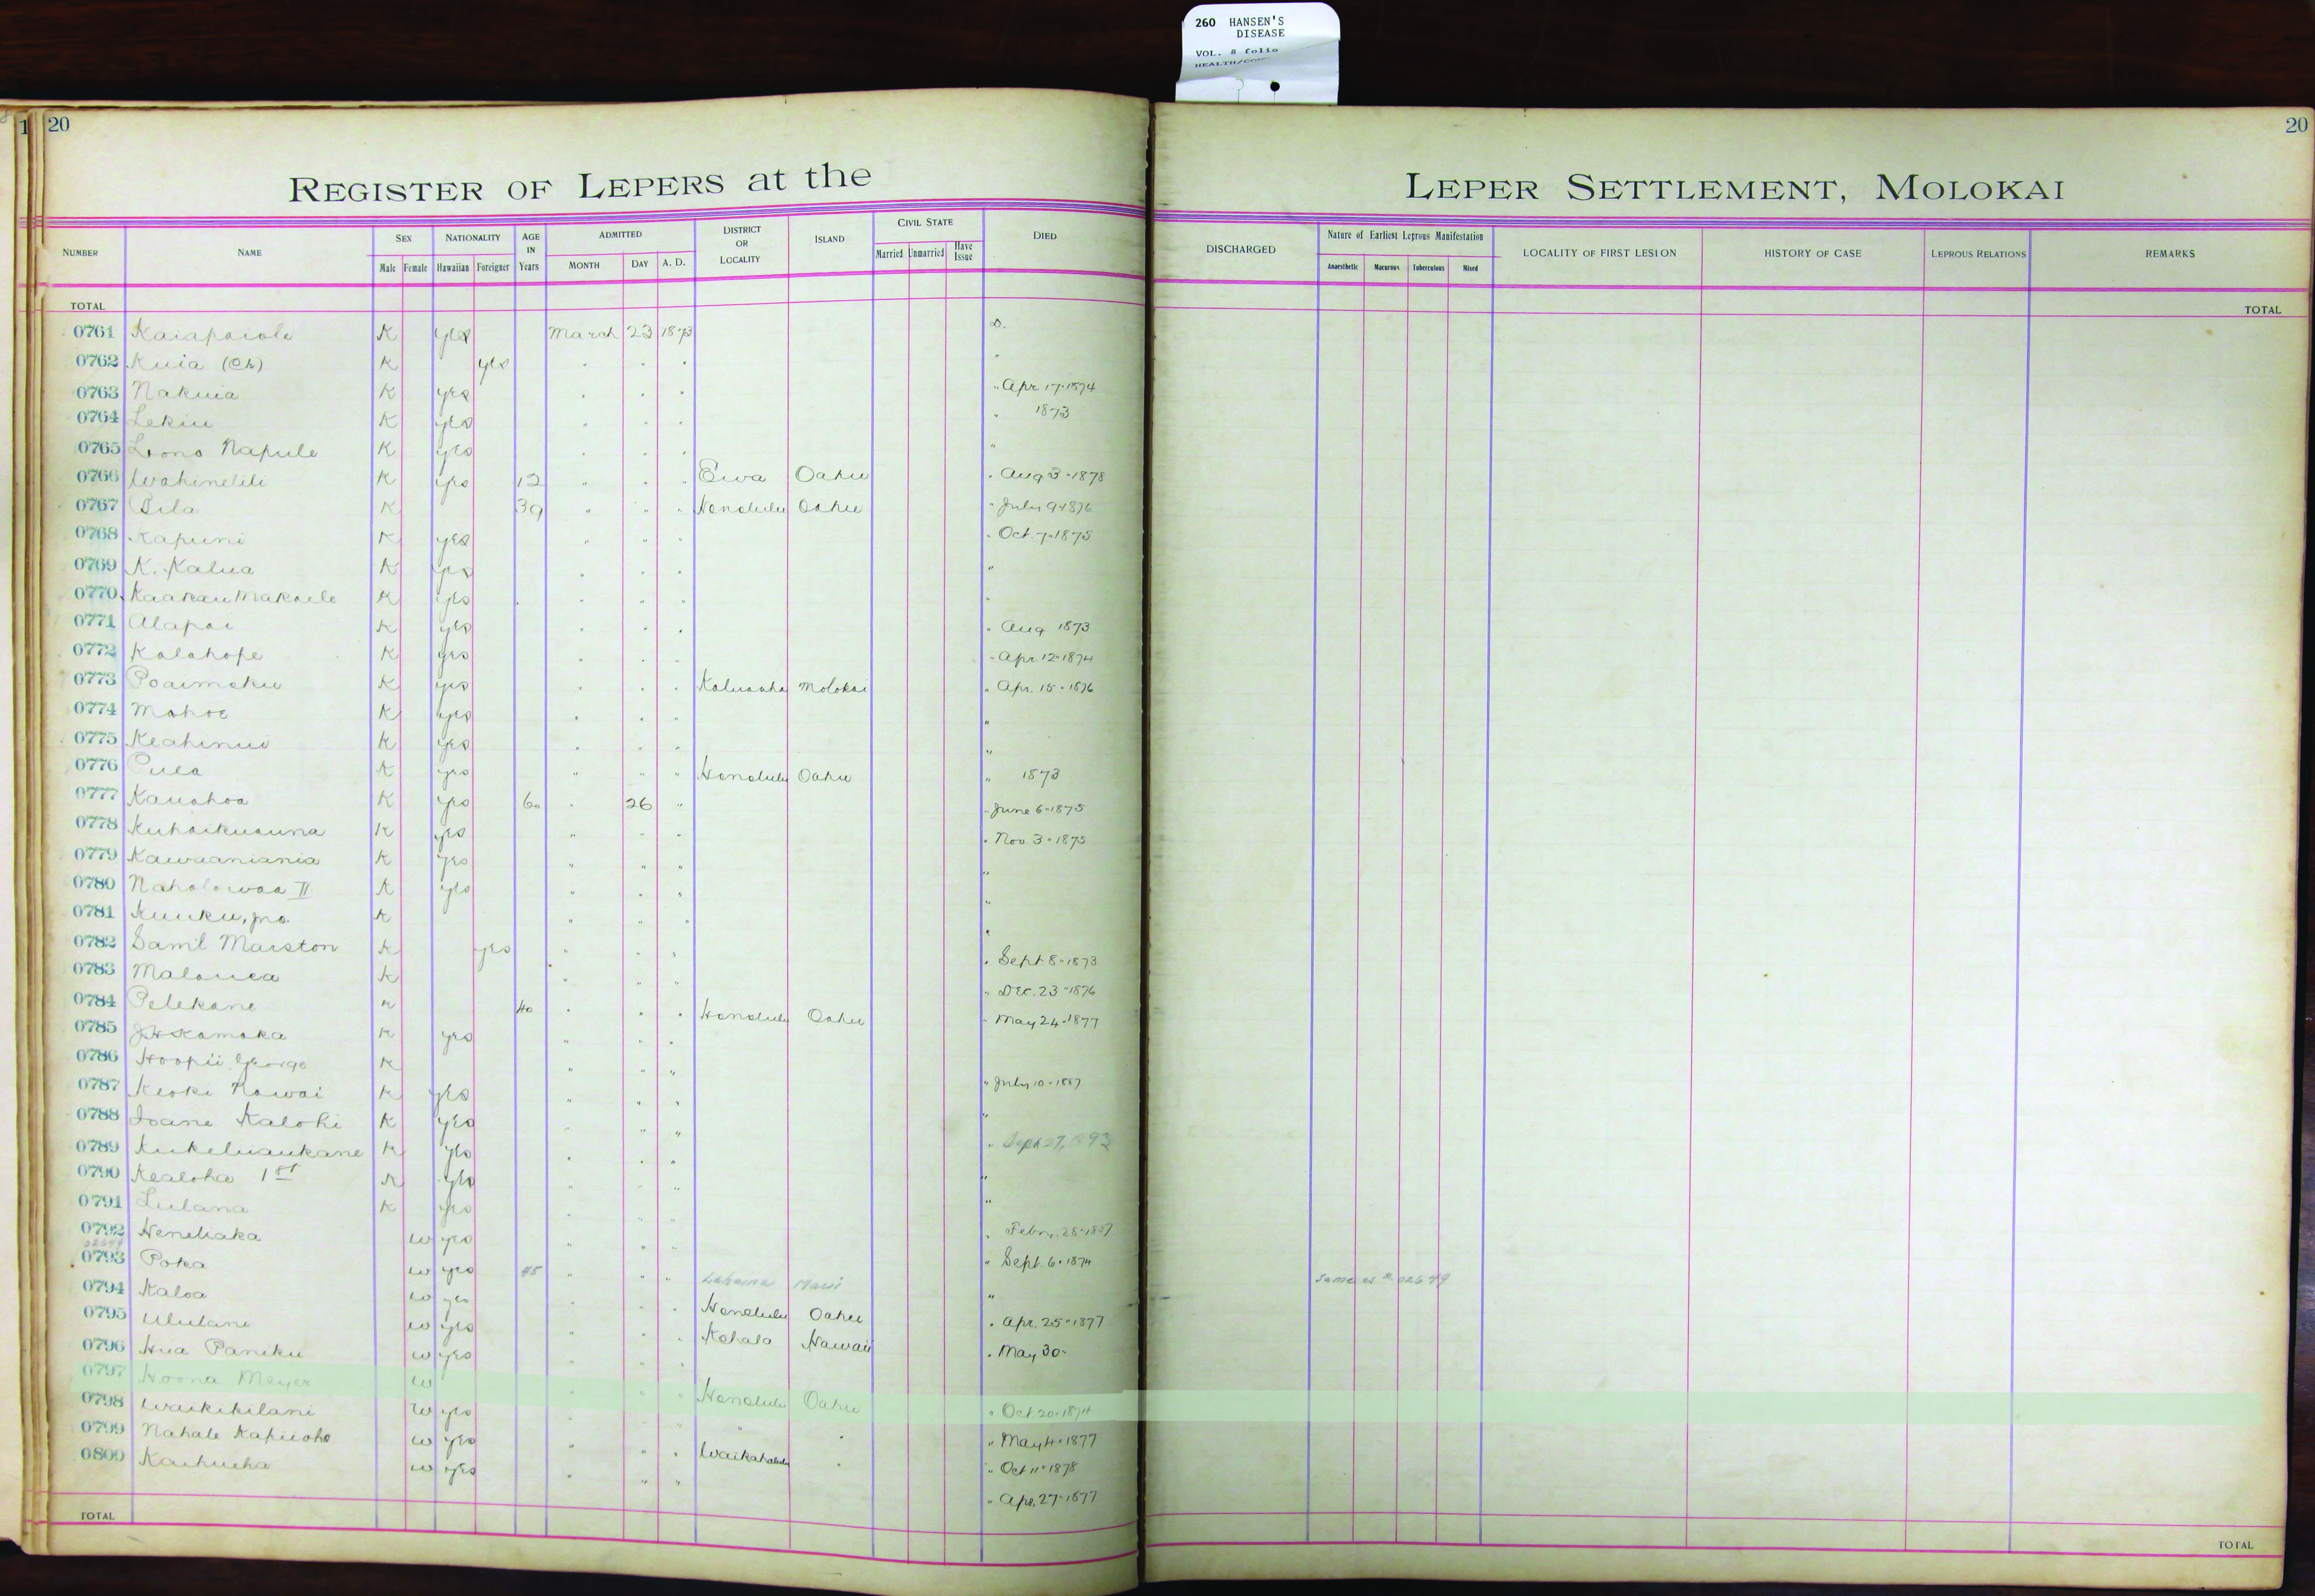 260 HANSEN'S
DISEASE
VOL. 8 folio
HEALTH/
1 20
20
REGISTER OF LEPERS at the LEPER SETTLEMENT, MOLOKAI
NUMBER NAME SEX Male Female NATIONALITY Hawaiian Foreigner AGE IN Years ADMITTED MONTH DAY A. D. DISTRICT OR LOCALITY ISLAND CIVIL STATE Married Unmarried Have Issue DIED DISCHARGED Nature of Earliest Leprous Manifestation Anaesthetic Macurous Tuberculous Mixed LOCALITY OF FIRST LESION HISTORY OF CASE LEPROUS RELATIONS REMARKS
TOTAL TOTAL
0761 Kaiapaiole K yes March 23 1873 D.
0762 Kuia (Ch) K yes " " " "
0763 Nakuia K yes " " " " Apr. 17-1874
0764 Lekiu K yes " " " " 1873
0765 Lono Napule K yes " " " "
0766 Wahinelili K yes 12 " " " Ewa Oahu " Aug 3-1878
0767 Pila K 39 " " " Honolulu Oahu " July 9-1876
0768 Kapuni K yes " " " " Oct. 7-1875
0769 K. Kalua K yes " " " "
0770 Kaakau Makaele K yes " " " "
0771 Alapai K yes " " " " Aug 1873
0772 Kalahope K yes " " " " Apr. 12-1874
0773 Poaimoku K yes " " " Kaluaaha Molokai " Apr. 15-1876
0774 Mahoe K yes " " " "
0775 Keahinui K yes " " " "
0776 Puea K yes " " " Honolulu Oahu " 1873
0777 Kauahoa K yes 60 " 26 " " June 6-1875
0778 Kuhaikuauna K yes " " " " Nov. 3-1875
0779 Kawaaniania K yes " " " "
0780 Naholowaa II K yes " " " "
0781 Kuuku, jno. K " " " "
0782 Saml Marston K yes " " " " Sept 8-1873
0783 Malouea K " " " " Dec. 23-1876
0784 Pelekane K 40 " " " Honolulu Oahu " May 24-1877
0785 J H Kamaka K yes " " "
0786 Hoopii George K " " " " July 10-1887
0787 Keoki Nawai K yes " " " "
0788 Ioane Kalohi K yes " " " " Sept 27, 1893
0789 Kukeluaukane K yes " " " "
0790 Kealoha 1st K yes " " " "
0791 Lulana K yes " " " " Febr. 28-1887
0792 Heneliaka W yes " " " " Sept. 6-1874
02649
0793 Poka W yes 45 " " " Lahaina Maui " same as # 02649
0794 Kaloa W yes " " " Honolulu Oahu " Apr. 25-1877
0795 Ululani W yes " " " Kohala Hawaii " May 30-
0796 Hua Paniku W yes " " "
0797 Hoona Meyer W " " " Honolulu Oahu " Oct. 20-1874
0798 Waikikilani W yes " " " " " " May 4-1877
0799 Nahale Kapiioho W yes " " " Waikahalulu " " Oct 11-1878
0800 Kaihueha W yes " " " " Apr. 27-1877
TOTAL TOTAL